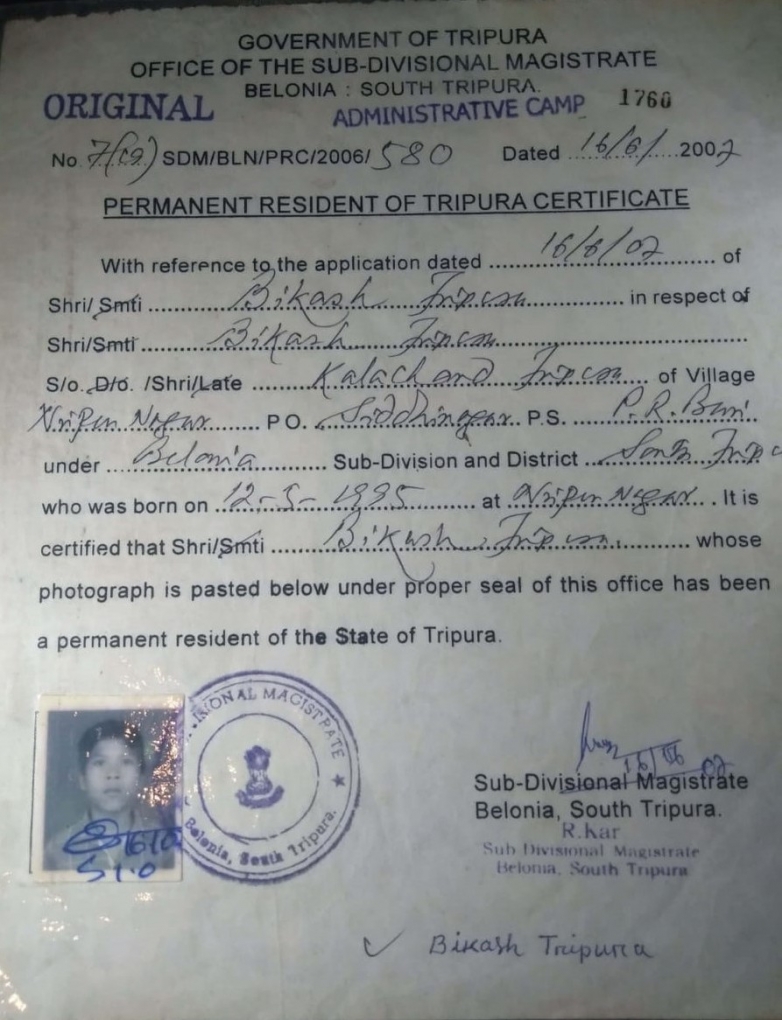 GOVERNMENT OF TRIPURA
OFFICE OF THE SUB-DIVISIONAL MAGISTRATE
BELONIA : SOUTH TRIPURA.
ORIGINAL ADMINISTRATIVE CAMP 1760
No. 7(19) SDM/BLN/PRC/2006/580 Dated 16/6/2007
PERMANENT RESIDENT OF TRIPURA CERTIFICATE
With reference to the application dated 16/6/07 of
Shri/Smti Bikash Tripura in respect of
Shri/Smti Bikash Tripura
S/o. D/o. /Shri/Late Kalachand Tripura of Village
Nripen Nagar P O. Siddhinagar P.S. P.R. Bari
under Belonia Sub-Division and District South Trip
who was born on 12-5-1995 at Nripen Nagar. It is
certified that Shri/Smti Bikash Tripura whose
photograph is pasted below under proper seal of this office has been
a permanent resident of the State of Tripura.
SIONAL MAGISTRATE ★
Belonia, South Tripura.
16/06/07
Sub-Divisional Magistrate
Belonia, South Tripura.
R.Kar
Sub Divisional Magistrate
Belonia, South Tripura
Bikash Tripura